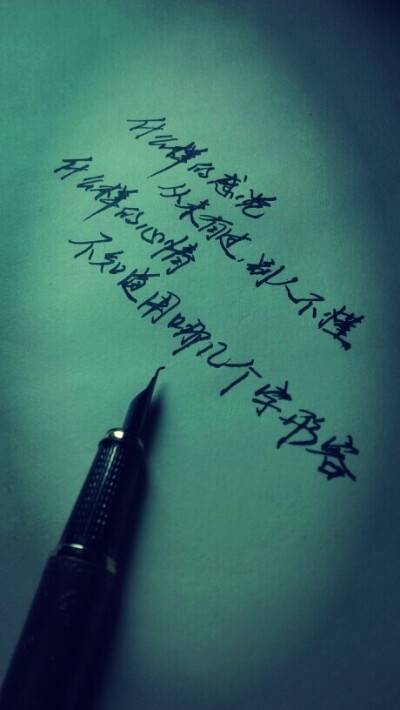 什么样的感觉
从未有过，别人不懂。
什么样的心情
不知道用哪几个字形容